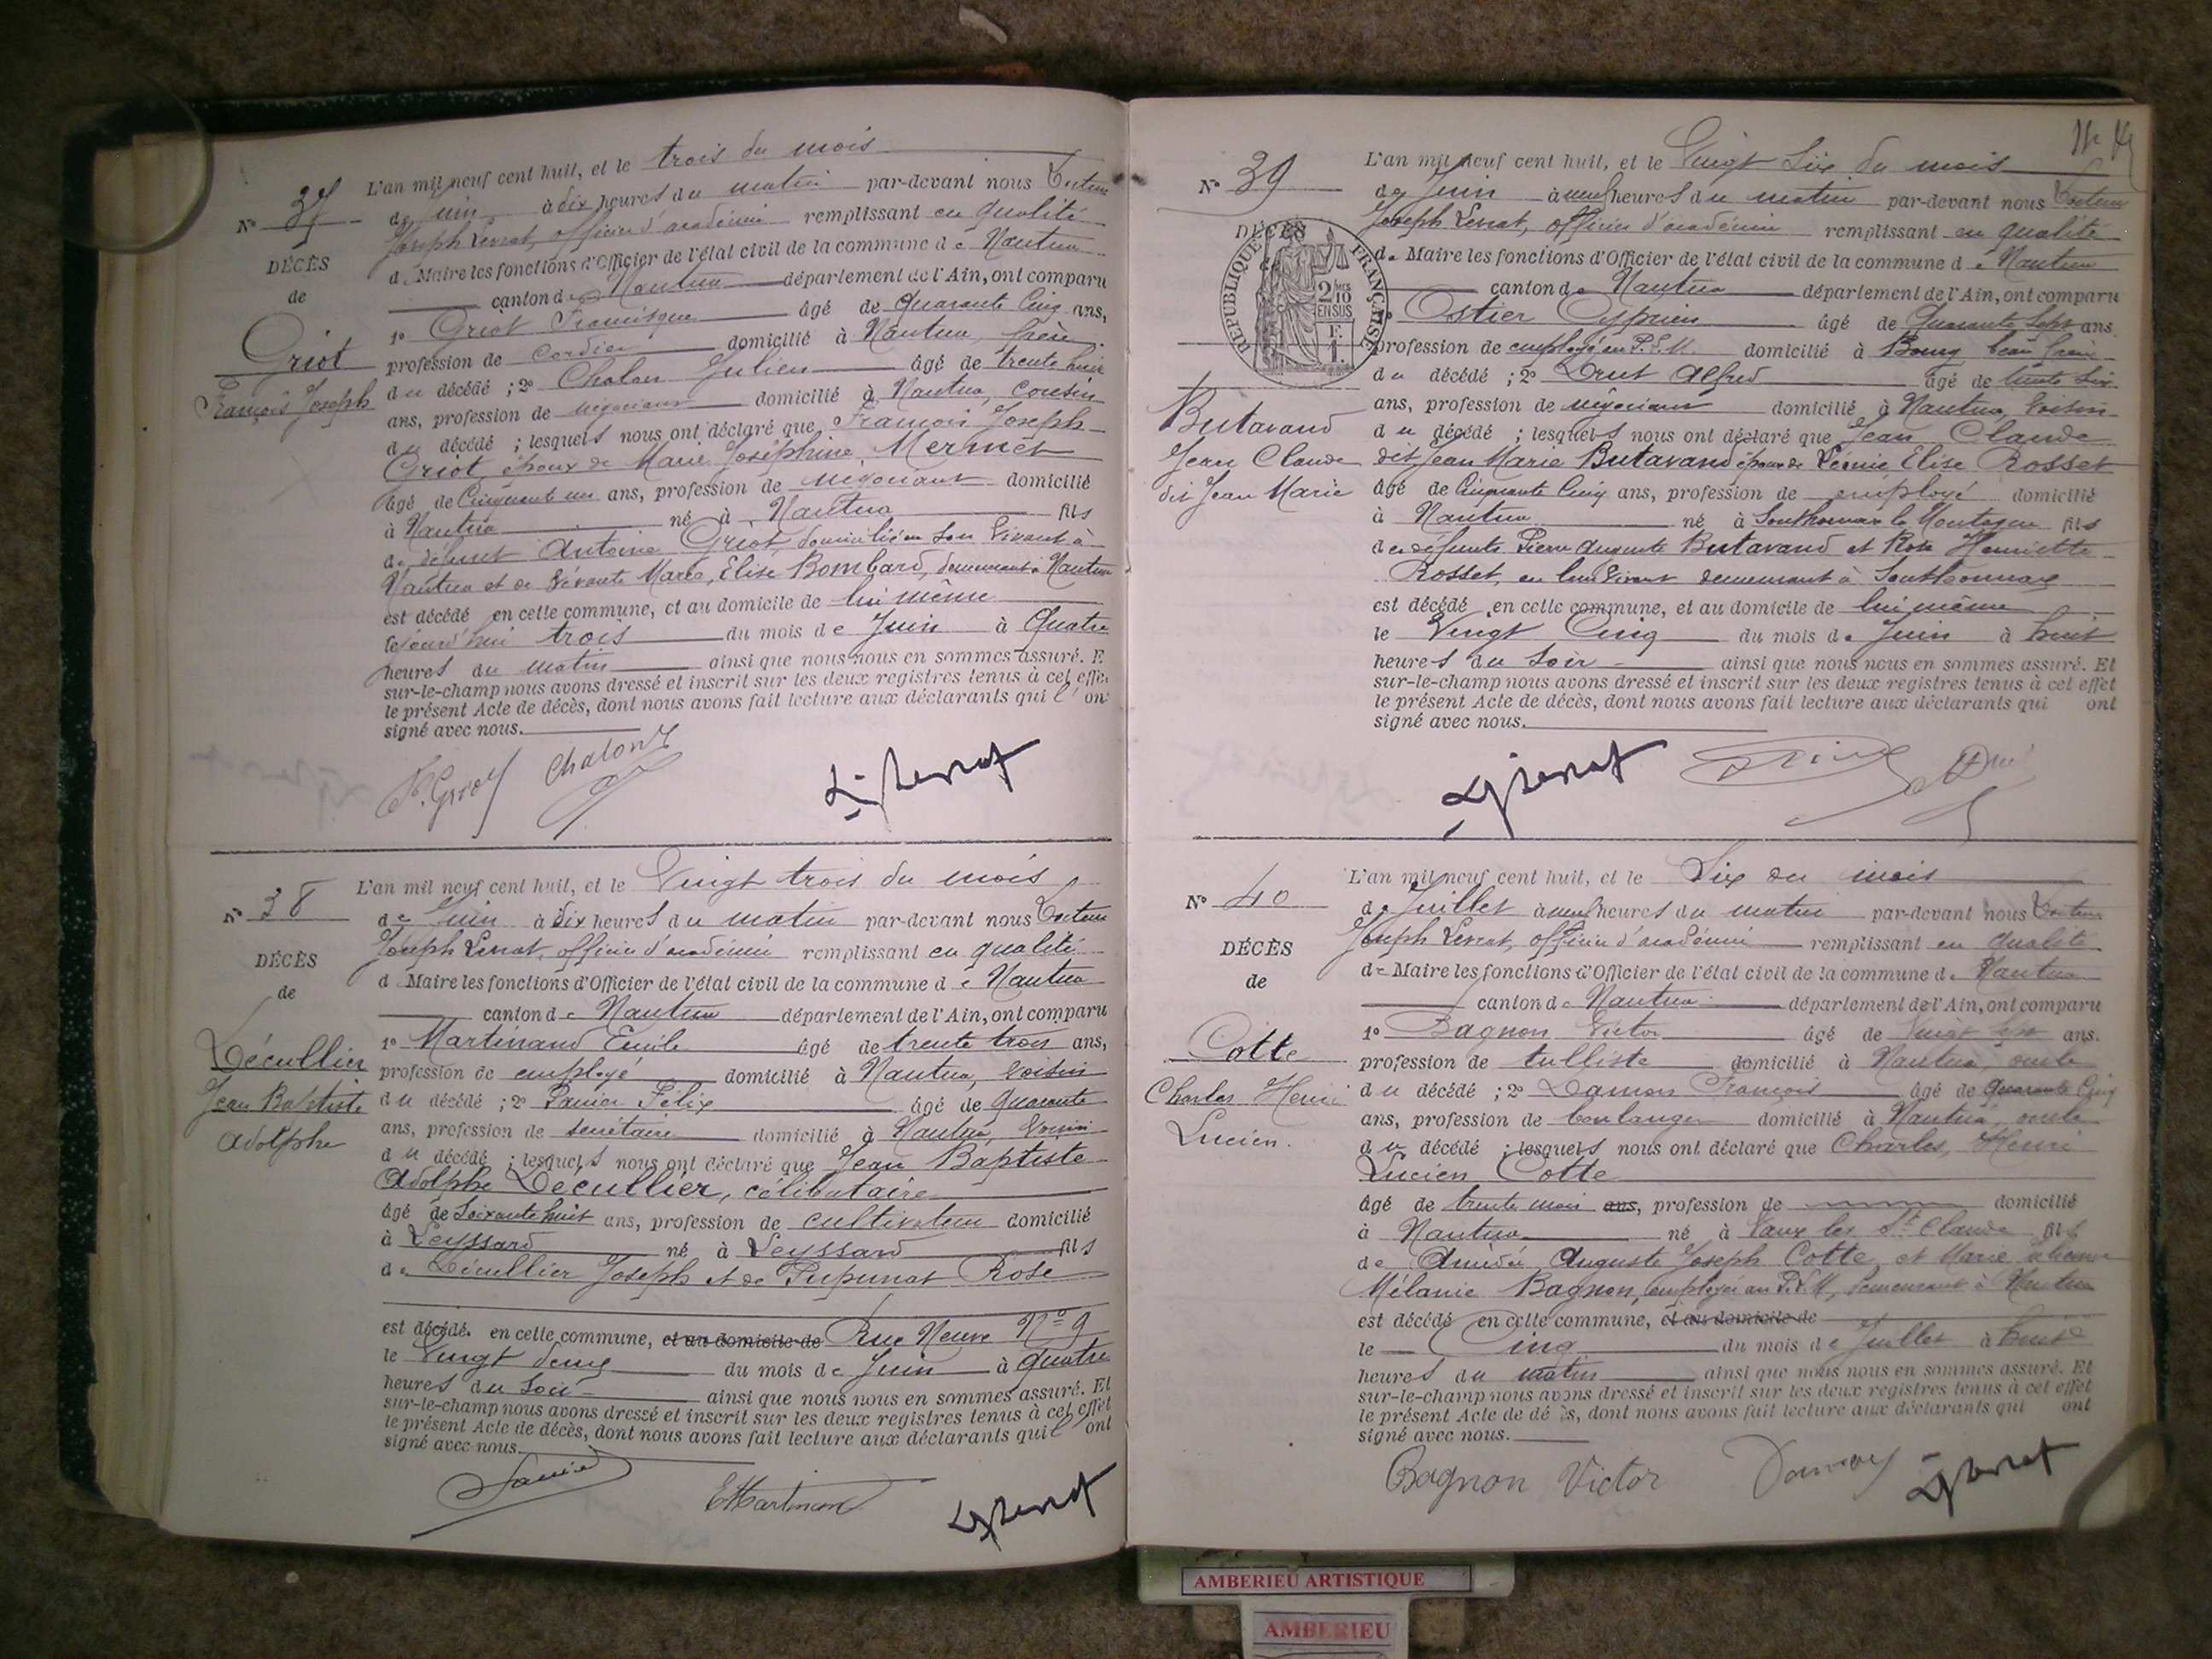 L'an mil neuf cent huit, et le trois du mois
N° 37
de Juin à dix heures du matin par-devant nous Docteur
Joseph Levrat, officier d'académie remplissant en qualité
DÉCÈS
de Maire les fonctions d'Officier de l'état civil de la commune de Nantua
de
canton de Nantua département de l'Ain, ont comparu
1° Griot Francisque âgé de quarante cinq ans,
Griot
profession de cordier domicilié à Nantua, frère
François Joseph
du décédé ; 2° Chalon Julien âgé de trente huit
ans, profession de négociant domicilié à Nantua, cousin
du décédé ; lesquels nous ont déclaré que François Joseph
Griot époux de Marie Joséphine Mermet
âgé de Cinquante un ans, profession de négociant domicilié
à Nantua né à Nantua fils
de défunt Antoine Griot, domicilié en son vivant à
Nantua et de vivante Marie, Elise Bombard, demeurant à Nantua
est décédé en cette commune, et au domicile de lui même
le jourd'hui trois du mois de Juin à Quatre
heures du matin ainsi que nous nous en sommes assuré. E
sur-le-champ nous avons dressé et inscrit sur les deux registres tenus à cet effet
le présent Acte de décès, dont nous avons fait lecture aux déclarants qui l'ont
signé avec nous.
F. Griot Chalon J Levrat
L'an mil neuf cent huit, et le Vingt trois du mois
N° 38
de Juin à dix heures du matin par-devant nous Docteur
Joseph Levrat, officier d'académie remplissant en qualité
DÉCÈS
d Maire les fonctions d'Officier de l'état civil de la commune de Nantua
de
canton de Nantua département de l'Ain, ont comparu
1° Martinand Emile âgé de trente trois ans,
Décullier
profession de employé domicilié à Nantua, voisin
Jean Baptiste
du décédé ; 2° Panier Félix âgé de quarante
Adolphe
ans, profession de secrétaire domicilié à Nantua, voisin
du décédé ; lesquels nous ont déclaré que Jean Baptiste
Adolphe Décullier, célibataire
âgé de Soixante huit ans, profession de cultivateur domicilié
à Leyssard né à Leyssard fils
de Décullier Joseph et de Pupunat Rose
est décédé en cette commune, et au domicile de Rue Neuve N° 9
le Vingt deux du mois de Juin à quatre
heures du soir ainsi que nous nous en sommes assuré. Et
sur-le-champ nous avons dressé et inscrit sur les deux registres tenus à cet effet
le présent Acte de décès, dont nous avons fait lecture aux déclarants qui l'ont
signé avec nous.
E Martinand J Levrat
L'an mil neuf cent huit, et le Vingt Six du mois
N° 39
de Juin à neuf heures du matin par-devant nous Docteur
Joseph Levrat, officier d'académie remplissant en qualité
DÉCÈS
RÉPUBLIQUE FRANÇAISE
2/10 EN SUS
de Maire les fonctions d'Officier de l'état civil de la commune de Nantua
canton de Nantua département de l'Ain, ont comparu
Ostier Cyprien âgé de Quarante Sept ans
profession de employé au P.L.M. domicilié à Bourg beau frère
du décédé ; 2° Drut Alfred âgé de trente six
Butavand
ans, profession de négociant domicilié à Nantua, voisin
du décédé ; lesquels nous ont déclaré que Jean Claude
Jean Claude
dit Jean Marie Butavand époux de Elise Rosset
dit Jean Marie
âgé de Cinquante Cinq ans, profession de employé domicilié
à Nantua né à Sonthonnax la Montagne fils
de défunts Pierre Auguste Butavand et Rose Henriette
Rosset, en leur vivant demeurant à Sonthonnax
est décédé en cette commune, et au domicile de lui même
le Vingt Cinq du mois de Juin à huit
heures du soir ainsi que nous nous en sommes assuré. Et
sur-le-champ nous avons dressé et inscrit sur les deux registres tenus à cet effet
le présent Acte de décès, dont nous avons fait lecture aux déclarants qui ont
signé avec nous.
J Levrat
L'an mil neuf cent huit, et le Six du mois
N° 40
de Juillet à neuf heures du matin par-devant nous Docteur
Joseph Levrat, officier d'académie remplissant en qualité
DÉCÈS
de Maire les fonctions d'Officier de l'état civil de la commune de Nantua
de
canton de Nantua département de l'Ain, ont comparu
1° Bagnon Victor âgé de vingt sept ans.
Cotte
profession de tulliste domicilié à Nantua, oncle
Charles Henri
du décédé ; 2° Damon François âgé de quarante Cinq
Lucien.
ans, profession de boulanger domicilié à Nantua, oncle
du décédé ; lesquels nous ont déclaré que Charles, Henri
Lucien Cotte
âgé de trente mois ans, profession de domicilié
à Nantua né à Vaux les St Claude fils
de Amédée Auguste Joseph Cotte et Marie
Mélanie Bagnon, employés au P.L.M, demeurant à Nantua
est décédé en cette commune, et au domicile de
le Cinq du mois de Juillet à huit
heures du matin ainsi que nous nous en sommes assuré. Et
sur-le-champ nous avons dressé et inscrit sur les deux registres tenus à cet effet
le présent Acte de dé ès, dont nous avons fait lecture aux déclarants qui ont
signé avec nous.
Bagnon Victor Damon J Levrat
AMBERIEU ARTISTIQUE
AMBERIEU